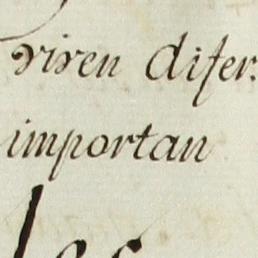 viven difer.
importan